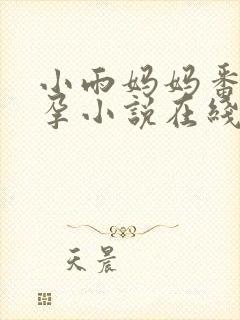 小雨妈妈番
孕小说在线
天晨